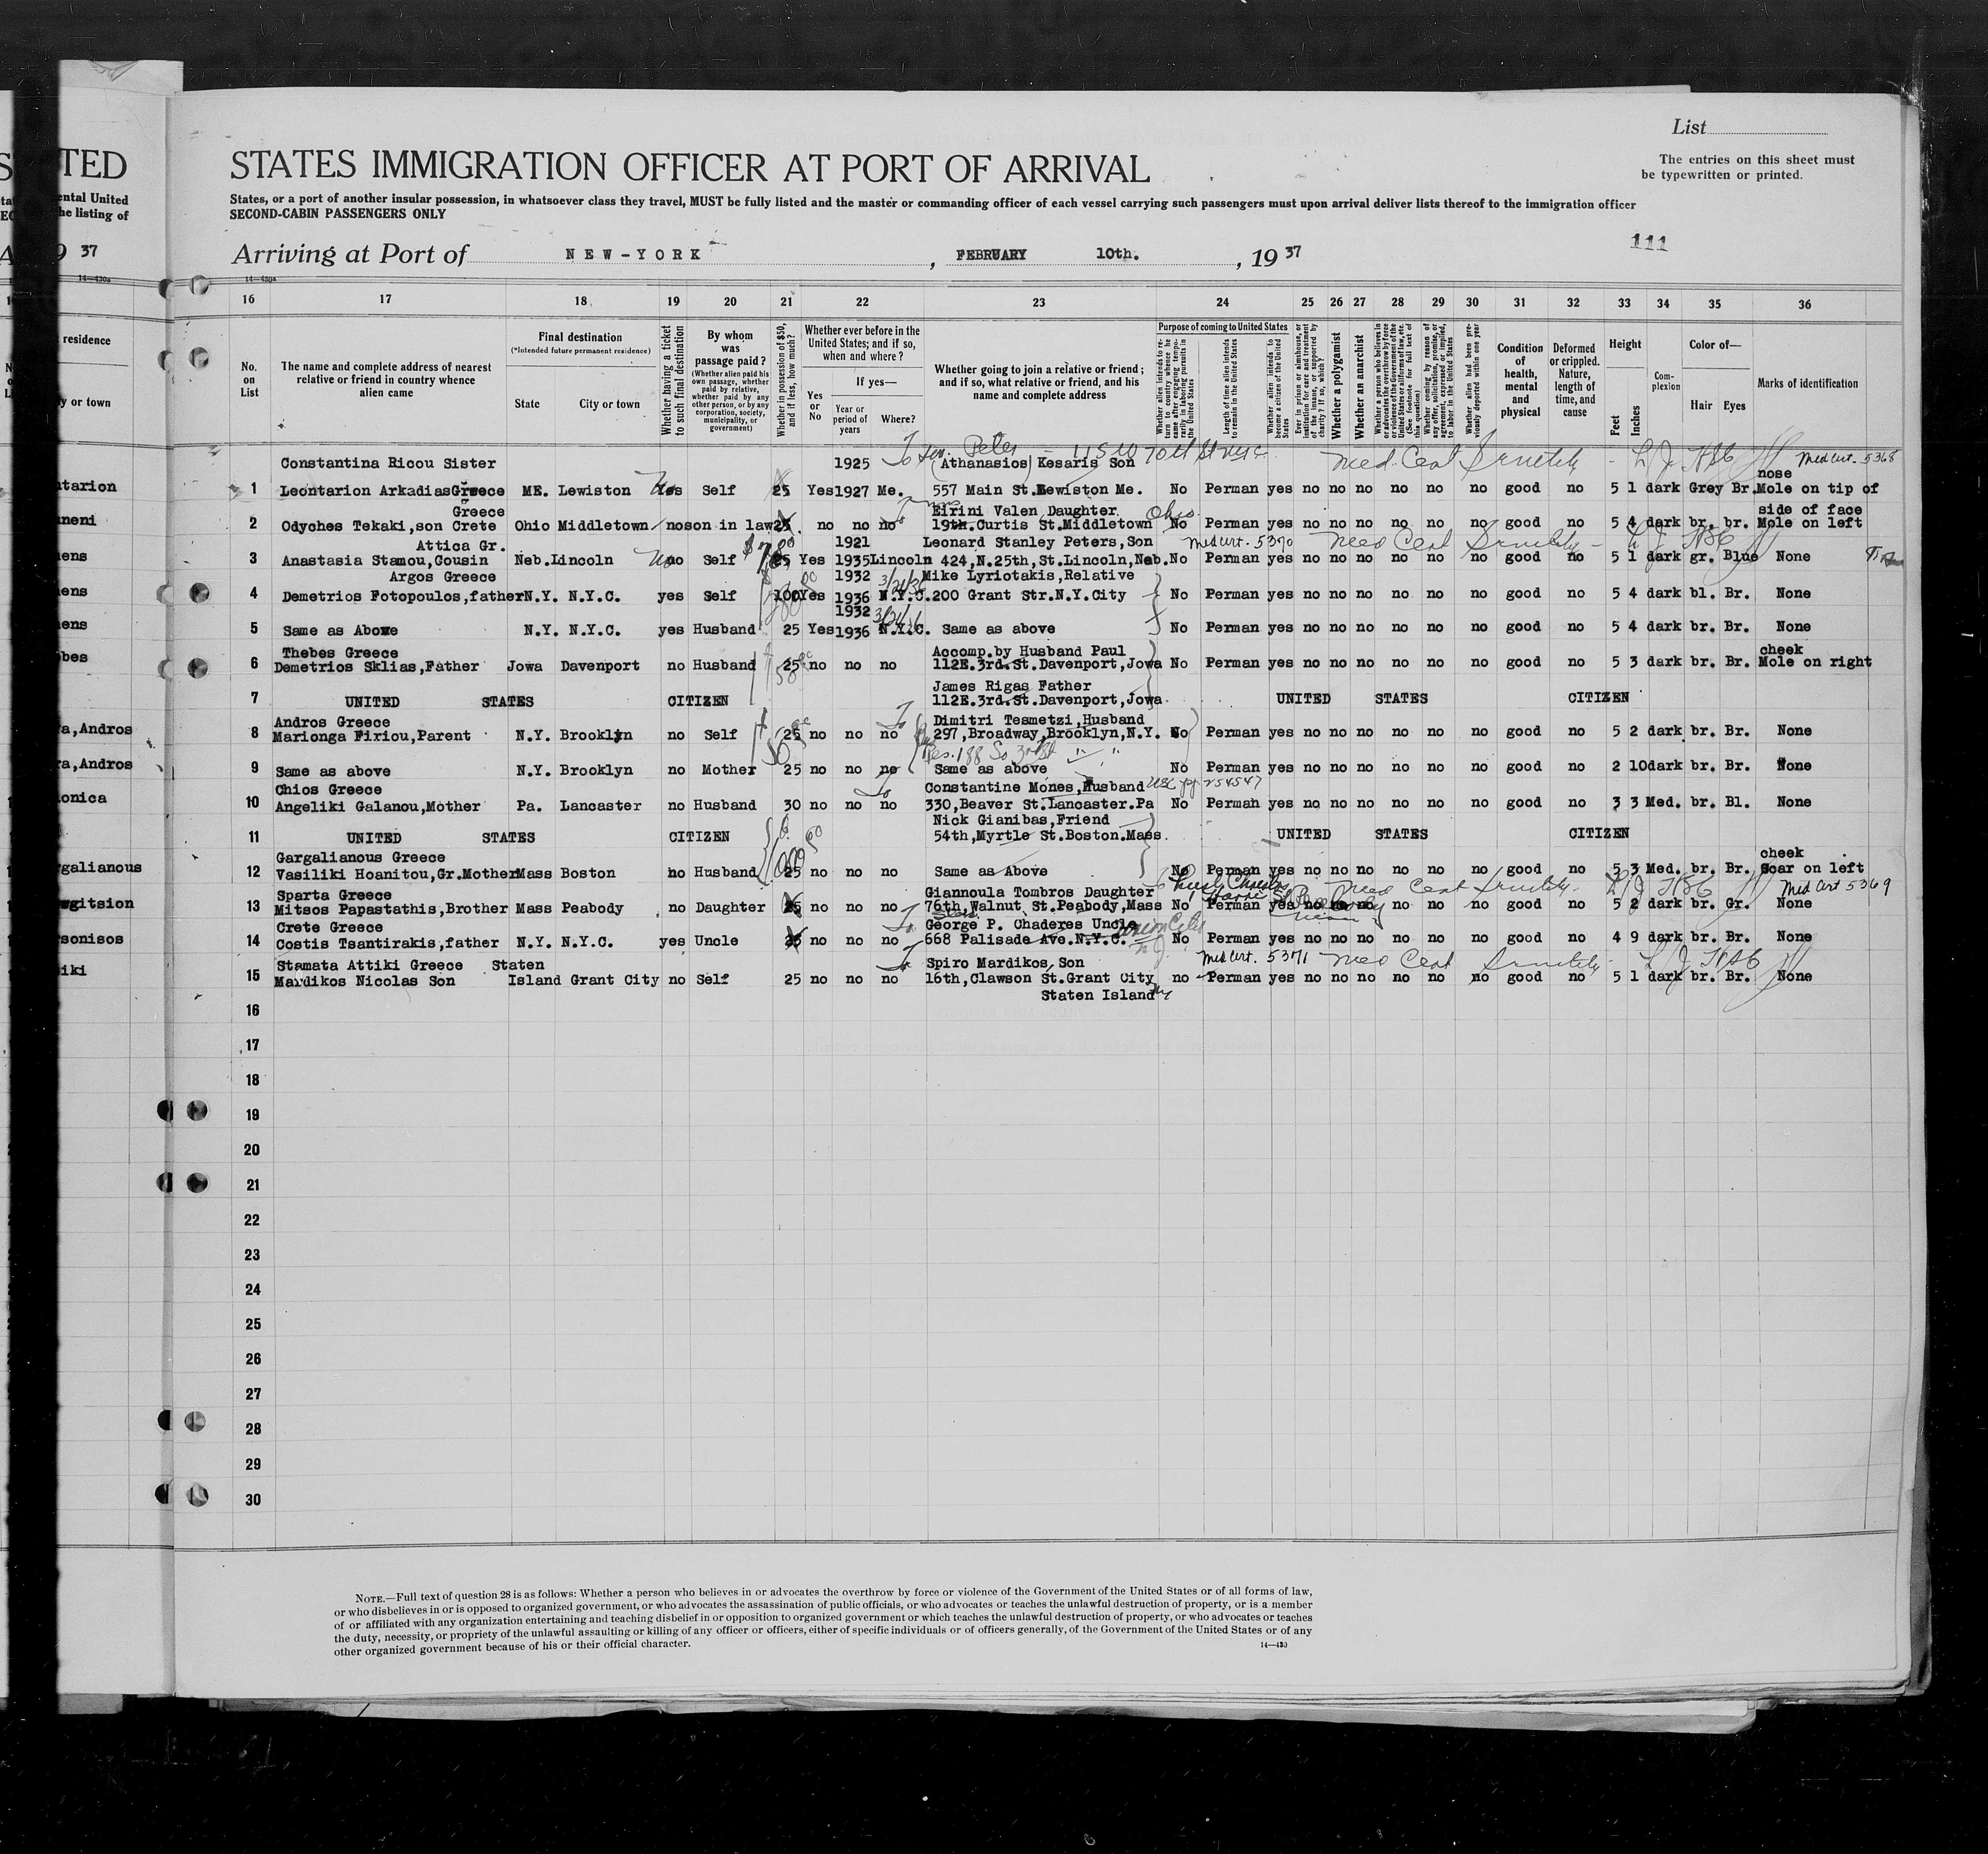 List
TED
STATES IMMIGRATION OFFICER AT PORT OF ARRIVAL
The entries on this sheet must
be typewritten or printed.
ental United
he listing of
States, or a port of another insular possession, in whatsoever class they travel, MUST be fully listed and the master or commanding officer of each vessel carrying such passengers must upon arrival deliver lists thereof to the immigration officer
SECOND-CABIN PASSENGERS ONLY
37
Arriving at Port of NEW-YORK, FEBRUARY 10th., 1937
111
14—430a
16 17 18 19 20 21 22 23 24 25 26 27 28 29 30 31 32 33 34 35 36
residence
y or town
No. on List
The name and complete address of nearest relative or friend in country whence alien came
Final destination
(*Intended future permanent residence)
State
City or town
Whether having a ticket to such final destination
By whom was passage paid?
(Whether alien paid his own passage, whether paid by relative, whether paid by any other person, or by any corporation, society, municipality, or government)
Whether in possession of $50, and if less, how much?
Whether ever before in the United States; and if so, when and where?
Yes or No
If yes—
Year or period of years
Where?
Whether going to join a relative or friend; and if so, what relative or friend, and his name and complete address
Purpose of coming to United States
Whether alien intends to return to country whence he came after engaging temporarily in laboring pursuits in the United States
Length of time alien intends to remain in the United States
Whether alien intends to become a citizen of the United States
Ever in prison or almshouse, or institution for care and treatment of the insane, or supported by charity? If so, which?
Whether a polygamist
Whether an anarchist
Whether a person who believes in or advocates the overthrow by force or violence of the Government of the United States or all forms of law, etc. (See footnote for full text of this question)
Whether coming by reason of any offer, solicitation, promise, or agreement, expressed or implied, to labor in the United States
Whether alien had been previously deported within one year
Condition of health, mental and physical
Deformed or crippled. Nature, length of time, and cause
Height
Feet
Inches
Complexion
Color of—
Hair Eyes
Marks of identification
Peter
Med Cert. 5368
Constantina Ricou Sister 1925 Athanasios Kesaris Son nose
1 Leontarion Arkadias Greece ME. Lewiston Self 25 Yes 1927 Me. 557 Main St. Lewiston Me. No Perman yes no no no no no no good no 5 1 dark Grey Br. Mole on tip of
Greece Eirini Valen Daughter Ohio side of face
2 Odyches Tekaki,son Crete Ohio Middletown no son in law 25 no no no 19th.Curtis St.Middletown No Perman yes no no no no no no good no 5 4 dark br. br. Mole on left
Attica Gr. 1921 Leonard Stanley Peters,Son Med Cert. 5370
3 Anastasia Stamou,Cousin Neb.Lincoln no Self 25 Yes 1935 Lincoln 424,N.25th,St.Lincoln,Neb. No Perman yes no no no no no no good no 5 1 dark gr. Blue None
Argos Greece 1932 Mike Lyriotakis,Relative
4 Demetrios Fotopoulos,father N.Y. N.Y.C. yes Self 100 Yes 1936 N.Y.C. 200 Grant Str.N.Y.City No Perman yes no no no no no no good no 5 4 dark bl. Br. None
1932
5 Same as Above N.Y. N.Y.C. yes Husband 25 Yes 1936 N.Y.C. Same as above No Perman yes no no no no no no good no 5 4 dark br. Br. None
Thebes Greece Accomp.by Husband Paul cheek
6 Demetrios Sklias,Father Jowa Davenport no Husband 25 no no no 112E.3rd.St.Davenport,Jowa No Perman yes no no no no no no good no 5 3 dark br. Br. Mole on right
James Rigas Father
7 UNITED STATES CITIZEN 112E.3rd.St.Davenport,Jowa. UNITED STATES CITIZEN
Andros Greece Dimitri Tesmetzi,Husband
8 Marionga Firiou,Parent N.Y. Brooklyn no Self 25 no no no 297,Broadway,Brooklyn,N.Y. No Perman yes no no no no no no good no 5 2 dark br. Br. None
9 Same as above N.Y. Brooklyn no Mother 25 no no no Same as above No Perman yes no no no no no no good no 2 10 dark br. Br. None
Chios Greece Constantine Mones,Husband
10 Angeliki Galanou,Mother Pa. Lancaster no Husband 30 no no no 330,Beaver St.Lancaster.Pa No Perman yes no no no no no no good no 3 3 Med. br. Bl. None
Nick Gianibas,Friend
11 UNITED STATES CITIZEN 54th,Myrtle St.Boston.Mass. UNITED STATES CITIZEN
Gargalianous Greece cheek
12 Vasiliki Hoanitou,Gr.Mother Mass Boston no Husband 25 no no no Same as Above No Perman yes no no no no no no good no 5 3 Med. br. Br. Scar on left
Sparta Greece Giannoula Tombros Daughter Med Cert 5369
13 Mitsos Papastathis,Brother Mass Peabody no Daughter 25 no no no 76th,Walnut St.Peabody,Mass No Perman yes no no no no no no good no 5 2 dark br. Gr. None
Crete Greece George P. Chaderes Uncle Union City
14 Costis Tsantirakis,father N.Y. N.Y.C. yes Uncle 25 no no no 668 Palisade Ave.N.Y.C. No Perman yes no no no no no no good no 4 9 dark br. Br. None
Stamata Attiki Greece Staten Spiro Mardikos,Son Med Cert. 5371
15 Mardikos Nicolas Son Island Grant City no Self 25 no no no 16th,Clawson St.Grant City no Perman yes no no no no no no good no 5 1 dark br. Br. None
Staten Island
16
17
18
19
20
21
22
23
24
25
26
27
28
29
30
NOTE.—Full text of question 28 is as follows: Whether a person who believes in or advocates the overthrow by force or violence of the Government of the United States or of all forms of law,
or who disbelieves in or is opposed to organized government, or who advocates the assassination of public officials, or who advocates or teaches the unlawful destruction of property, or is a member
of or affiliated with any organization entertaining and teaching disbelief in or opposition to organized government or which teaches the unlawful destruction of property, or who advocates or teaches
the duty, necessity, or propriety of the unlawful assaulting or killing of any officer or officers, either of specific individuals or of officers generally, of the Government of the United States or of any
other organized government because of his or their official character.
14—430